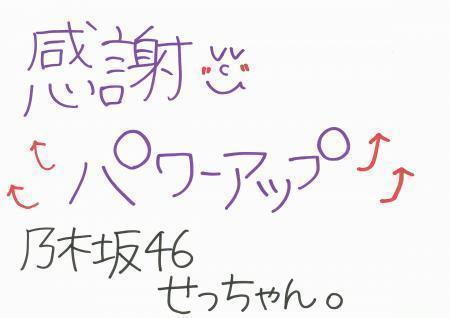 感謝
パワーアップ
乃木坂46
せっちゃん。